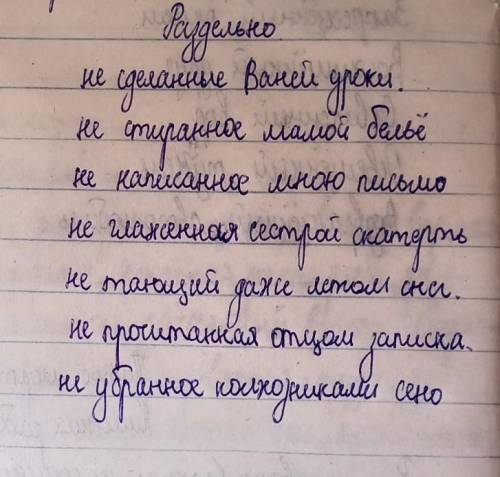 Раздельно.
не сделанные Ваней уроки.
не стиранное мамой бельё
не написанное мною письмо
не глаженная сестрой скатерть
не тающий даже летом снег.
не прочитанная отцом записка.
не убранное колхозниками сено